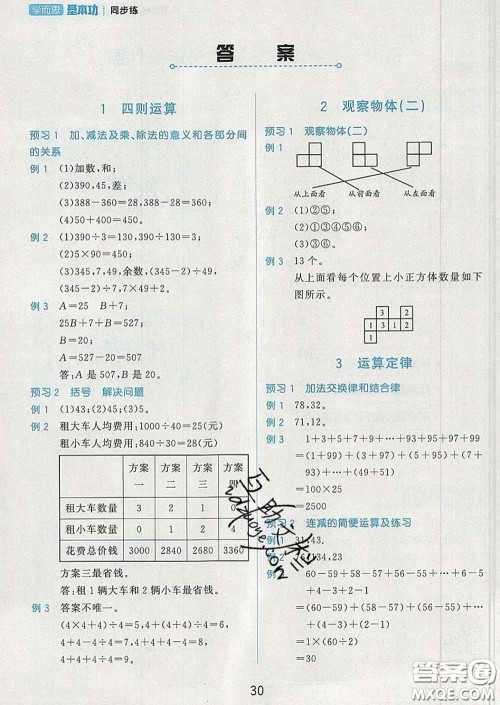 学而思 基本功 同步练
答 案
1 四则运算
预习1 加、减法及乘、除法的意义和各部分间
的关系
例1 (1)加数,和;
(2)390,45,差;
(3)388-360=28,388-28=360;
(4)50+400=450。
例2 (1)390÷3=130,390÷130=3;
(2)15×2=30;
(3)345,7,49,余数,(345-2)÷7=49,
(345-2)÷49=7。
例3 A=25B+7;
25B+7+B=527;
B=20;
A=527-20=507。
答:A是507,B是20。
预习2 括号 解决问题
例1 (1)43;(2)45;(3)5。
例2 租大车人均费用:1000÷40=25(元)
租小车人均费用:840÷30=28(元)
方案一 方案二 方案三 方案四
租大车数量 3 2 1 0
租小车数量 0 1 2 4
花费总价钱 3000 2840 2680 3360
方案三最省钱。
答:租1辆大车和2辆小车最省钱。
例3 答案不唯一。
(4×4+4)÷4=5,(4+4)÷4+4=6,
4+4-4÷4=7,4+4+4-4=8,
4÷4+4+4=9。
2 观察物体(二)
预习1 观察物体(二)
例1
从上面看 从前面看 从左面看
例2 (1)②⑤;
(2)①③④⑤⑥;
(3)③⑥。
例3 13个。
从上面看每个位置上小正方体数量如下
图所示。
1 1 2
1 3 1 2
3 运算定律
预习1 加法交换律和结合律
例1 78,32。
例2 71,12。
例3 1+3+5+7+…+93+95+97+99
=(1+99)+(3+97)+(5+95)+(7+
93)+…+(49+51)
=100×25
=2500
预习2 连减的简便运算及练习
例1 31,43.
例2 34,23.
例3 60-59+58-57+56-55+…+4-
3+2-1
=(60-59)+(58-57)+(56-55)+
…+(4-3)+(2-1)
=1×(60÷2)
=30
互助作业
zdzuoye.com
30
答案圈
MXQE.COM